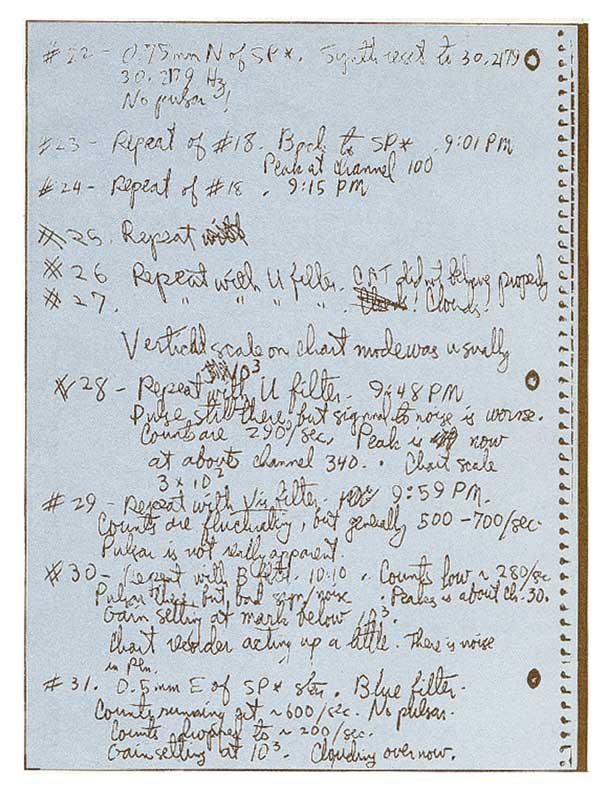 #22 - 0.75mm N of SP*. Synth reset to 30.2179
30.2179 Hz
No pulsar!
#23 - Repeat of #18. Back to SP*. 9:01 PM
Peak at channel 100
#24 - Repeat of #18. 9:15 PM
#25. Repeat with
#26 Repeat with U filter. CAT did not behave properly
#27. " " " ". ! Clouds!
Vertical scale on chart mode was usually
10³
#28 - Repeat with U filter. 9:48 PM
Pulse still there, but signal to noise is worse.
Counts are 290/sec. Peak is now
at about channel 340. Chart scale
3 x 10².
#29 - Repeat with Vis filter. 9:59 PM.
Counts are fluctuating, but generally 500-700/sec.
Pulsar is not really apparent.
#30 - Repeat with B filter. 10:10. Counts low ~ 280/sec
Pulsar there, but bad sign/noise. Peak is about ch. 30.
Gain setting at mark below 10³.
Chart recorder acting up a little. There is noise
in pen.
#31. 0.5mm E of SP*. Blue filter.
Counts running at ~600/sec. No pulsar.
Counts dropped to ~200/sec.
Gain setting at 10³. Clouding over now.